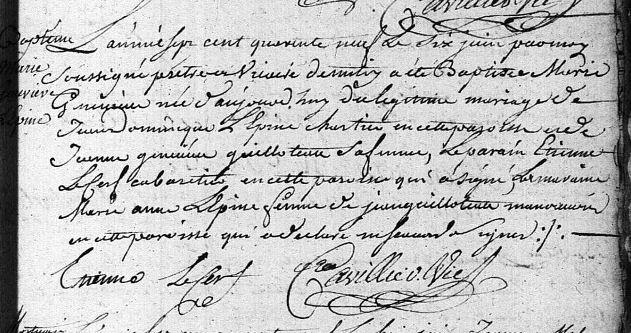 Baptême
Marie
Genevieve
L'Epine
L'année sept cent quarente neuf Le six juin par moy
soussigné prêtre vicaire de a été Baptisée Marie
Genevieve née d'aujourd'huy du legitime mariage de
Jean Dominique L'Epine chartier en cette paroisse et de
Jeanne genevieve guilloteau sa femme, Le parain Etienne
Le Cerf cabaretier en cette paroisse qui a signé, La maraine
Marie anne L'Epine femme de jean guilloteau manouvrier
en cette paroisse qui a declaré ne sçavoir signer :/:
Etienne Le Cerf